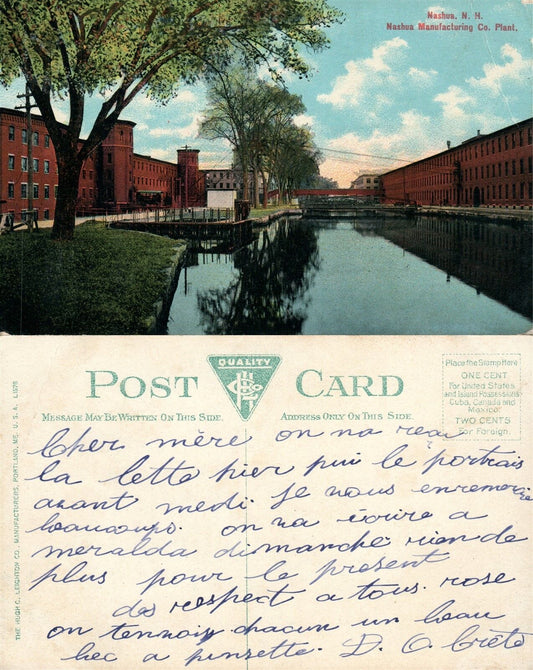 Nashua, N. H.
Nashua Manufacturing Co. Plant.
QUALITY
POST CARD
MESSAGE MAY BE WRITTEN ON THIS SIDE.
ADDRESS ONLY ON THIS SIDE.
Place the Stamp Here
ONE CENT
For United States
and Island Possessions
Cuba, Canada and
Mexico
TWO CENTS
For Foreign.
THE HUGH C. LEIGHTON CO., MANUFACTURERS, PORTLAND, ME. U. S. A.
Cher mère on na
la letto hier pui le portrais
avant medi. Je vous
beaucoups. on va écrire a
meralda dimanche rien de
plus pour le present
des respect a tous. rose
on tennoiy chacun un beau
bec a